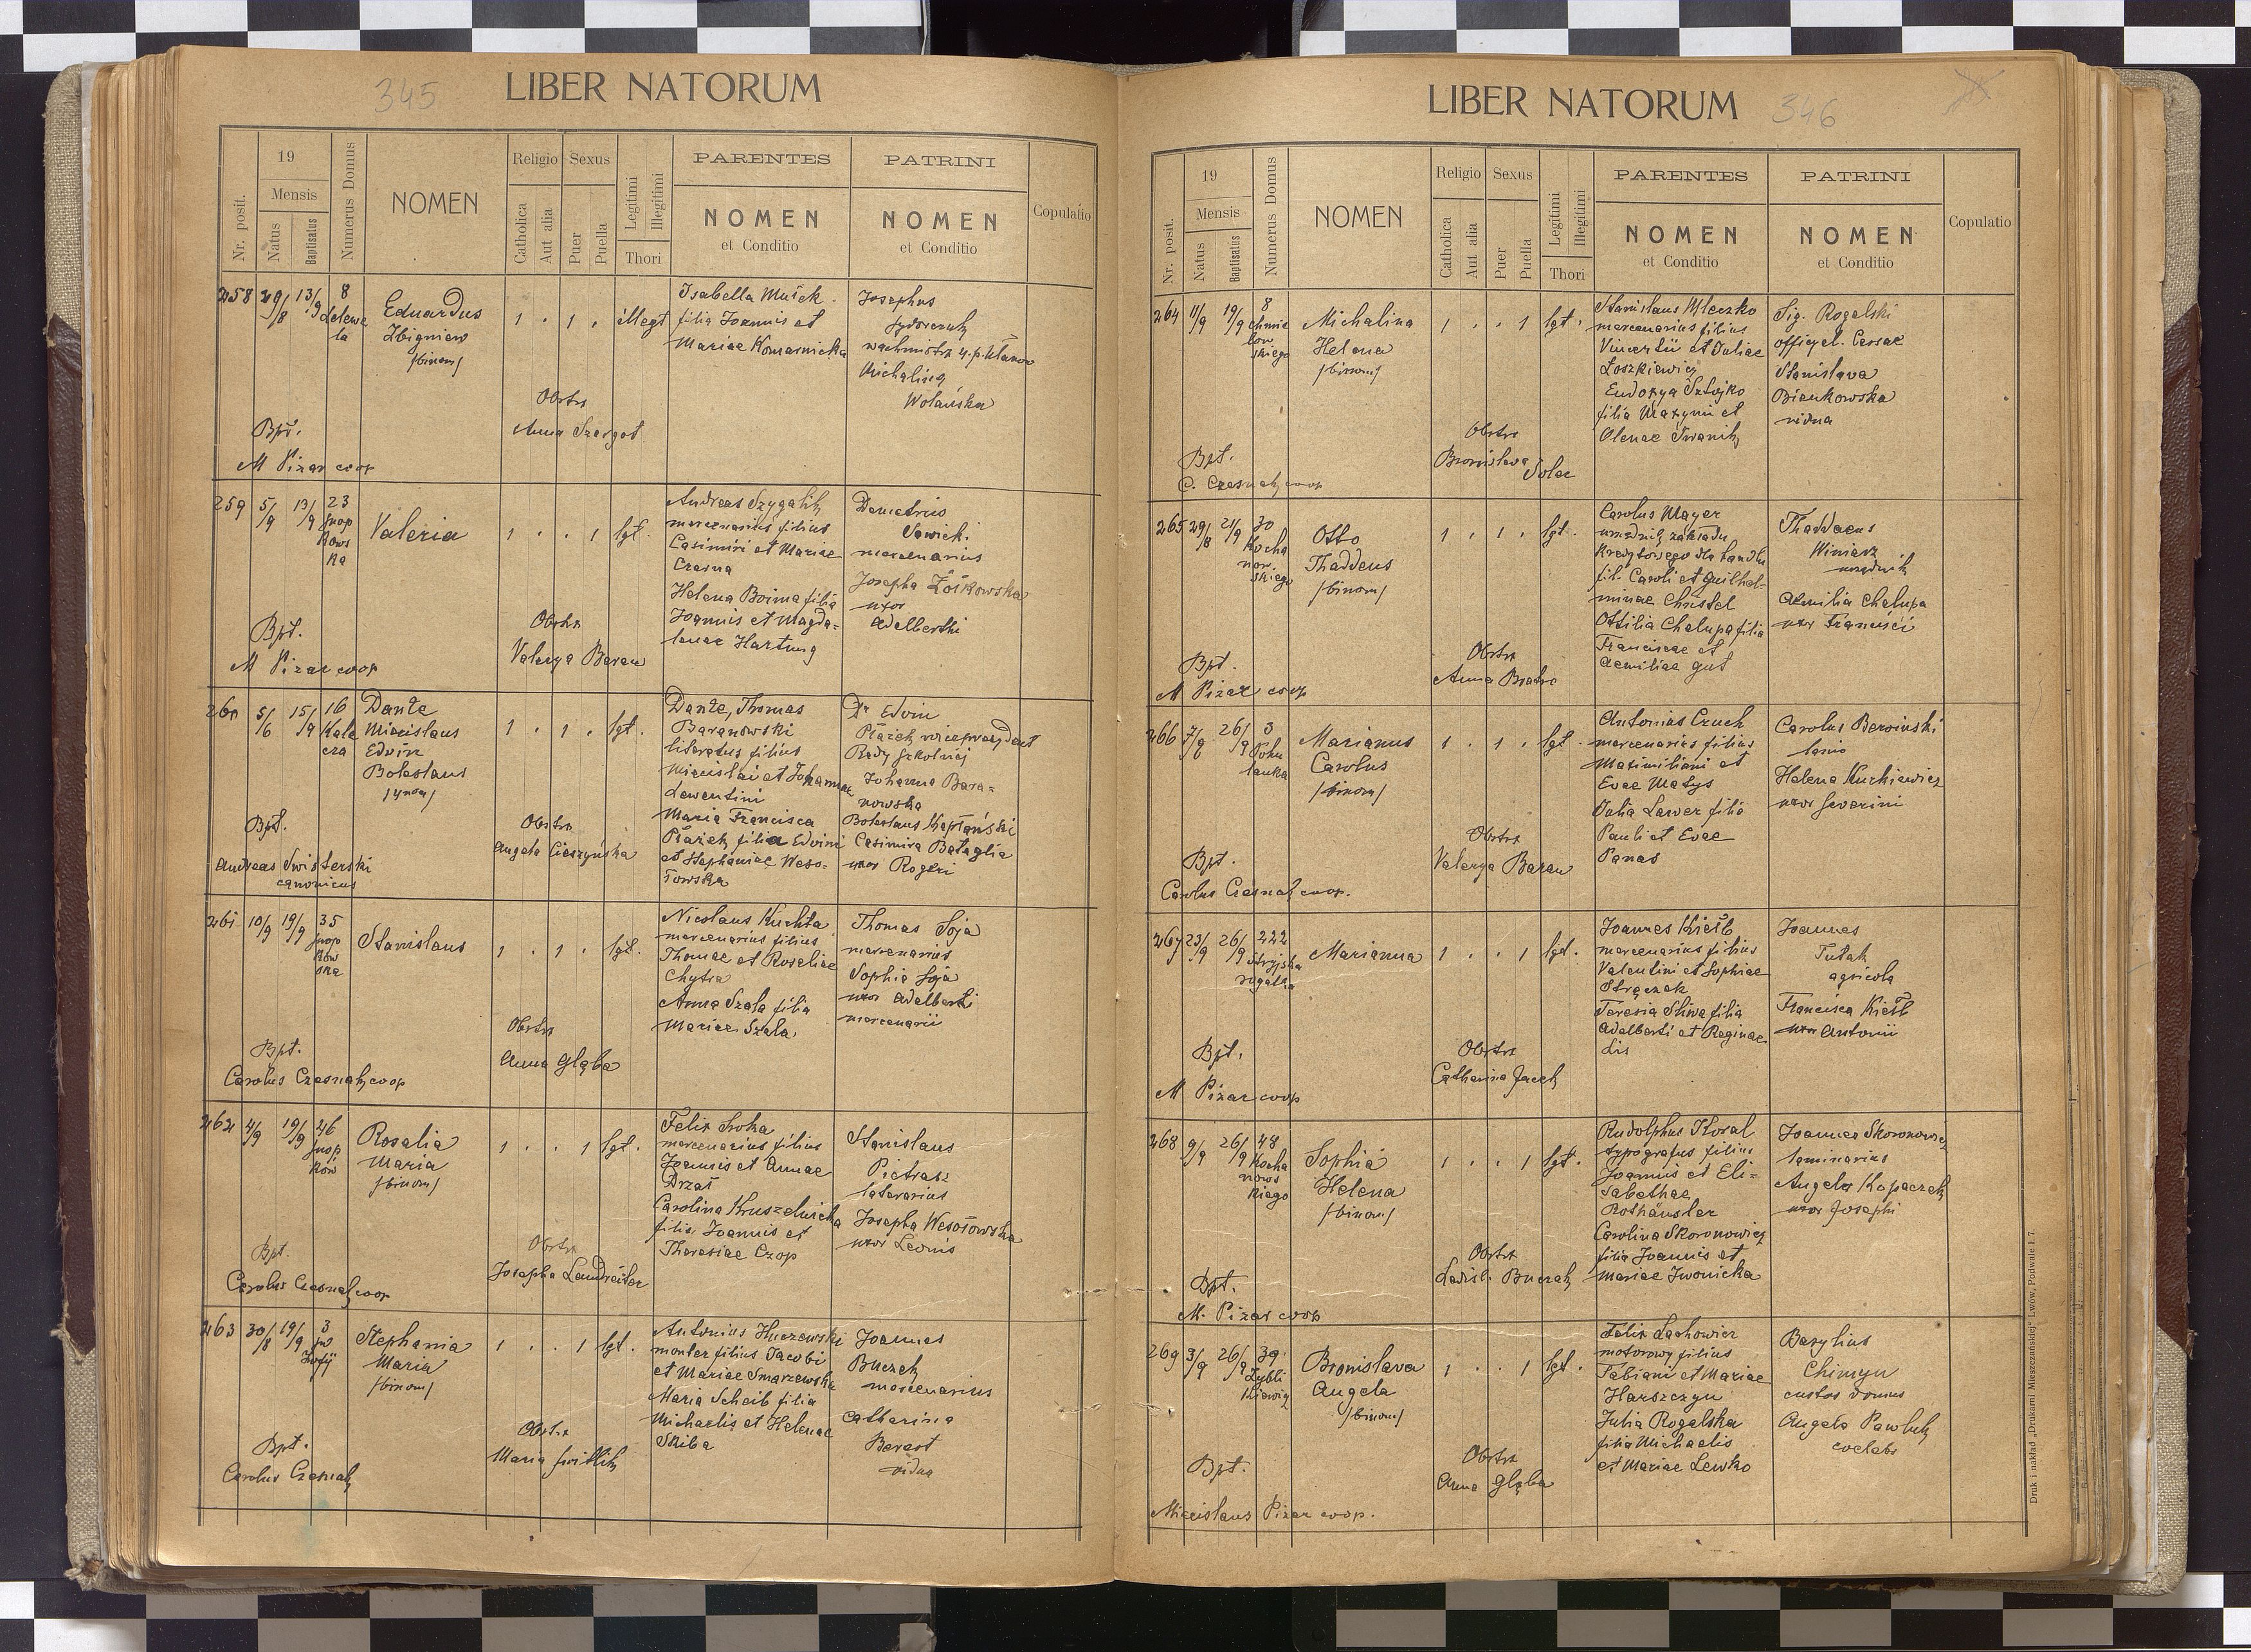 345
LIBER NATORUM
19
Mensis
Nr. posit.
Natus
Baptisatus
Numerus Domus
NOMEN
Religio
Sexus
Catholica
Aut alia
Puer
Puella
Legitimi
Illegitimi
Thori
PARENTES
NOMEN
et Conditio
PATRINI
NOMEN
et Conditio
Copulatio
258 29/8 13/9 8
Lelewe
la
Eduardus
Zbigniew
/binom/
1 . 1 . illegt
Isabella Musek
filia Joannis et
Mariae Komarnicka
Josephus
wachmistrz 4. p. Ułanów
Michalina
Wolańska
Obstrx
Anna Szargot
Bpt.
M Pizar coop
259 5/9 13/9 23
Snop
kows
ka
Valeria
1 . . 1 lgt.
Andreas Szygalik
mercenarius filius
Casimiri et Mariae
Czarna
Helena Boima filia
Joannis et Magda=
lenae Hartung
Demetrius
Sawicki
mercenarius
Josepha Żółkowska
uxor
Adalberthi
Obstrx
Valerya Baran
Bpt.
M Pizar coop
260 5/6 15/9 16
Kale
cza
Dante
Miecislaus
Edvin
Boleslaus
1 . 1 . lgt.
Dante, Thomas
Baranowski
literatus filius
Miecislai et Johannae
Lewentini
Maria Francisca
Płażek filia Edvini
et Stephaniae Weso-
łowska
Dr Edvin
Płażek wiceprezydent
Rady szkolnej
Johanna Bara=
nowska
Boleslaus Kapłański
Casimira Bataglia
uxor Rogeri
Obstrx
Angela Cieszyńska
Bpt.
Andreas Swisterski
canonicus
261 10/9 19/9 35
Snop
ków
ska
Stanislaus
1 . 1 . lgt.
Nicolaus Kuchta
mercenarius filius
Thomae et Rosaliae
Chytra
Anna Szala filia
Mariae Szala
Thomas Soja
mercenarius
Sophia Soja
uxor Adalberti
mercenarii
Obstrx
Anna Głąba
Bpt.
Carolus Czesnak coop
262 4/9 19/9 26
Snop
ków
Rosalia
Maria
/binom/
1 . . 1 lgt.
Felix Sroka
mercenarius filius
Joannis et Annae
Drzał
Carolina Kruszelnicka
filia Joannis et
Theresiae Czop
Stanislaus
Pietrasz
laterarius
Josepha Wesołowska
uxor Leonis
Obstrx
Josepha Landreiter
Bpt.
Carolus Czesnak coop
263 30/8 19/9 3
św
Zofji
Stephania
Maria
/binom/
1 . . 1 lgt.
Antonius Huczewski
monter filius Jacobi
et Mariae Smarzewska
Maria Scheib filia
Michaelis et Helenae
Skiba
Joannes
Buczek
mercenarius
Catharina
Barast
vidua
Obstrx
Maria Świtlik
Bpt.
Carolus Czesnak
LIBER NATORUM
346
19
Mensis
Nr. posit.
Natus
Baptisatus
Numerus Domus
NOMEN
Religio
Sexus
Catholica
Aut alia
Puer
Puella
Legitimi
Illegitimi
Thori
PARENTES
NOMEN
et Conditio
PATRINI
NOMEN
et Conditio
Copulatio
264 11/9 19/9 8
Chmie
low
skiego
Michalina
Helena
/binom/
1 . . 1 lgt.
Stanislaus Mleczko
mercenarius filius
Vincentii et Juliae
Łoszkiewicz
Eudoxya Sztojko
filia Maxymi et
Olenae Iwanik
Sig. Rogalski
Stanislava
Bienkowska
vidua
Obstrx
Bronislava Solec
Bpt.
C. Czesnak coop
265 29/8 21/9 30
Kocha
now
skiego
Otto
Thaddeus
/binom/
1 . 1 . lgt.
Carolus Mayer
urzędnik zakładu
Kredytowego dla handlu
fil. Caroli et Guilhel-
minae Christel
Ottilia Chalupa filia
Francisci et
Aemiliae Gut
Thaddaeus
Winiarz
urzędnik
Aemilia Chalupa
uxor Francisci
Obstrx
Anna Bratro
Bpt.
M Pizar coop
266 7/9 26/9 3
Pohu
lanka
Marianus
Carolus
/binom/
1 . 1 . lgt.
Antonius Czuch
mercenarius filius
Maximiliani et
Evae Matys
Julia Lawer filia
Pauli et Evae
Panas
Carolus Berwinski
lanio
Helena Kurkiewicz
uxor Severini
Obstrx
Valerya Baran
Bpt.
Carolus Czesnak coop.
267 23/9 26/9 222
Stryjska
rogatka
Marianna
1 . . 1 lgt.
Joannes Kiełb
mercenarius filius
Valentini et Sophiae
Strączek
Teresia Śliwa filia
Adalberti et Reginae
Lis
Joannes
Tutak
agricola
Francisca Kiełb
uxor Antonii
Obstrx
Catharina Jacek
Bpt.
M Pizar coop
268 9/9 26/9 48
Kocha
nows
kiego
Sophia
Helena
/binom/
1 . . 1 lgt.
Rudolphus Koral
typografus filius
Joannis et Eli=
sabethae
Rothäusler
Carolina Skoronowicz
filia Joannis et
Mariae Iwonicka
Joannes Skoronowicz
laminarius
Angela Kopaczek
uxor Josephi
Obstrx
Ladisl. Buczek
Bpt.
M. Pizar coop
269 3/9 26/9 39
Zybli
kiewicz
Bronislava
Angela
/binom/
1 . . 1 lgt.
Felix Lachowicz
motorowy filius
Fabiani et Mariae
Harszczyn
Julia Rogalska
filia Michaelis
et Mariae Lewko
Bazylius
Chimyn
custos domus
Angela Pawluk
coelebs
Obstrx
Anna Głąba
Bpt.
Miecislaus Pizar coop.
Druk i nakład „Drukarni Mieszczańskiej" Lwów, Podwale l. 7.